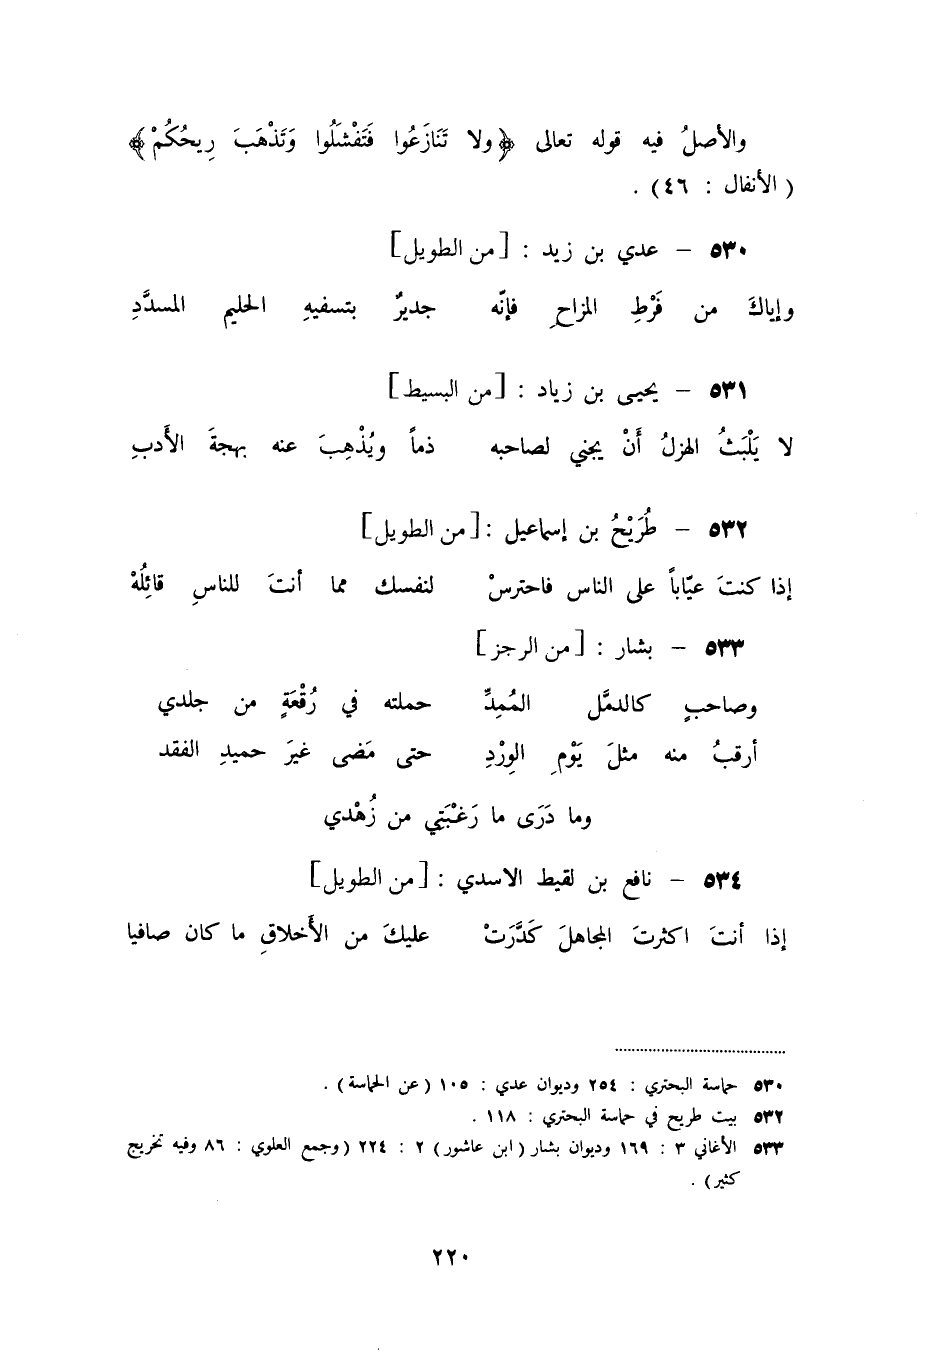 والأصلُ فيه قوله تعالى ﴿ولا تَنَازَعُوا فَتَفْشَلُوا وَتَذْهَبَ رِيحُكُمْ﴾
( الأنفال : ٤٦) .
٥٣٠ – عدي بن زيد : [من الطويل]
وإياكَ من فَرْطِ المزاحِ فإنّه جديرٌ بتسفيهِ الحليم المسدَّدِ
٥٣١ – يحيى بن زياد : [من البسيط]
لا يَلْبَثُ الهزلُ أَنْ يجني لصاحبه ذماً ويُذْهِبَ عنه بهجةَ الأَدبِ
٥٣٢ – طُرَيْحُ بن إسماعيل : [من الطويل]
إذا كنتَ عيّاباً على الناس فاحترسْ لنفسك مما أنتَ للناسِ قائِلُهْ
٥٣٣ – بشار : [من الرجز]
وصاحبٍ كالدمَّل المُمِدِّ حملته في رُقْعَةٍ من جلدي
أرقبُ منه مثلَ يَوْمِ الوِرْدِ حتى مَضى غيرَ حميدِ الفقد
وما دَرَى ما رَغْبَتِي من زُهْدي
٥٣٤ – نافع بن لقيط الاسدي : [من الطويل]
إذا أنتَ اكثرتَ المجاهلَ كَدَّرَتْ عليكَ من الأَخلاقِ ما كان صافيا
٥٣٠ حماسة البحتري : ٢٥٤ وديوان عدي : ١٠٥ (عن الحماسة) .
٥٣٢ بيت طريح في حماسة البحتري : ١١٨ .
٥٣٣ الأغاني ٣ : ١٦٩ وديوان بشار (ابن عاشور) ٢ : ٢٢٤ (وجمع العلوي : ٨٦ وفيه تخريج
كثير) .
٢٢٠